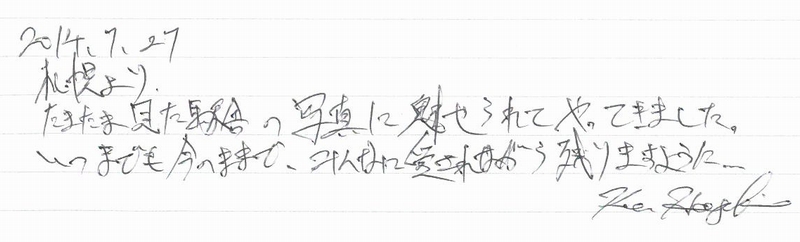 2014.7.27
札幌より.
たまたま見た駅舎の写真に魅せられてやってきました。
いつまでも今のままで、みんなに愛されながら残りますように…